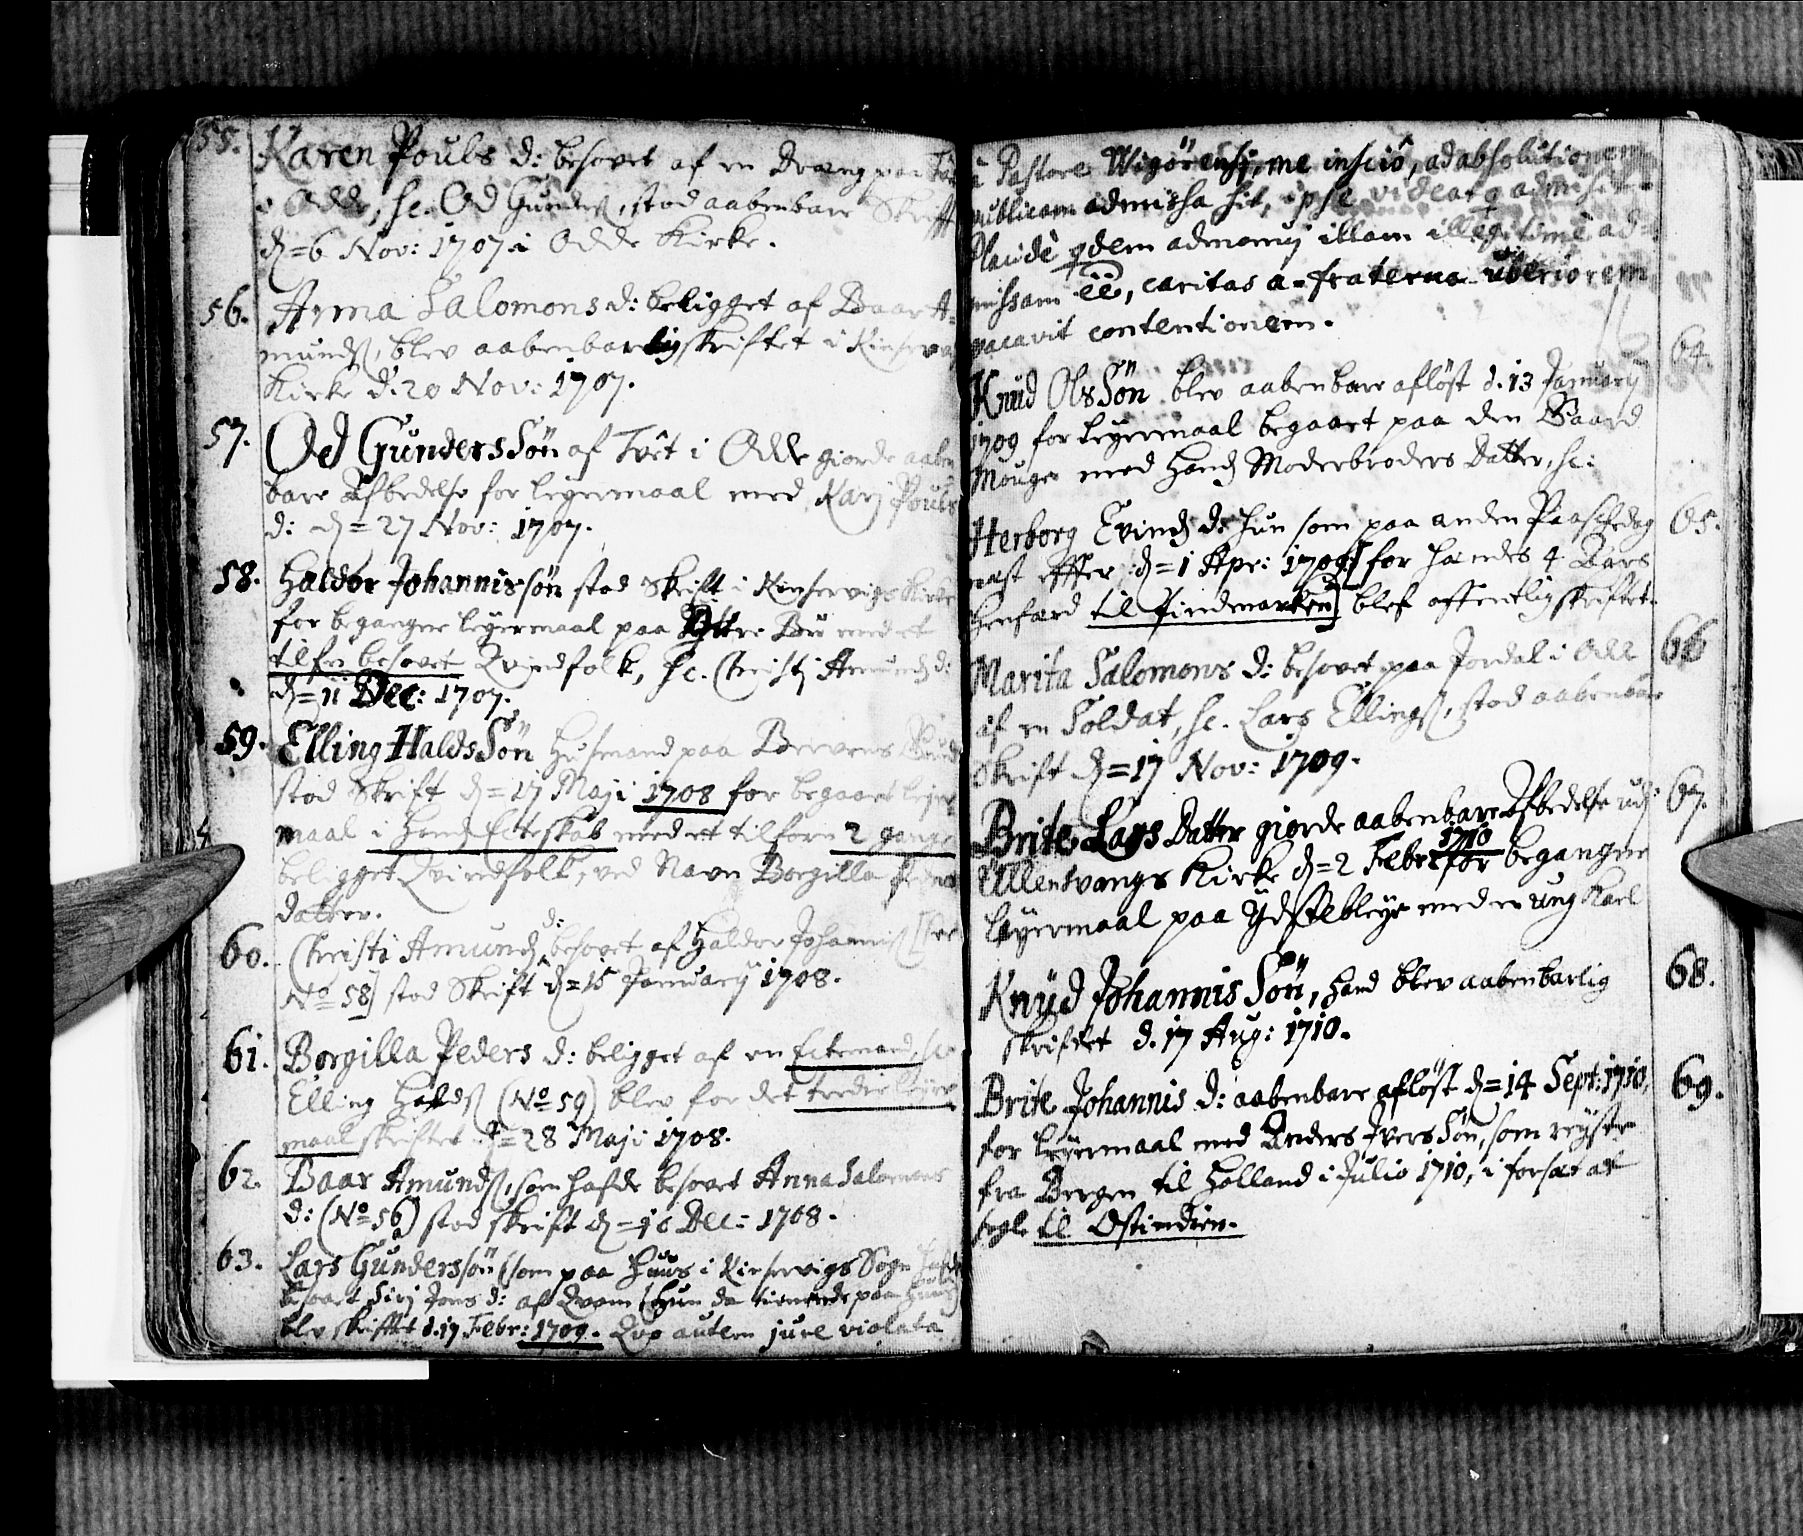 55. Karen Pouls d: besovet af en Dreng paa
i Odde, sc. Od Gunders, stod aabenbare Skrifft
d=6 Nov: 1707 i Odde Kirke.
56. Anna Salomons d: beligget af Baar A-
munds, blev aabenbarlig skriftet i Kinservig
Kirke d. 20 Nov: 1707.
57. Od Gunders Søn af Tvêt i Odde giorde aaben
bare Afbedelse for leyermaal med Karj Pouls
d: d=27 Nov: 1707.
58. Haldor Johannissøn stod Skrift i Kinservigs Kirke
for begangne leyermaal paa Yttre Bu med et
tilfn besovet Qvindfolk, sc. Christj Amunds d:
d=11 Dec: 1707.
59. Elling Halds Søn Huusmand paa
stod Skrift d=17 Maji 1708 for begaaet leyer
maal i hends Ecteskab med et tilforn 2 gange
beligget Qvindfolk, ved Navn Borgilla Peders
datter.
60. Christi Amunds d: besovet af Haldor Johannis [see
No 58] stod Skrift d=15 Januarij 1708.
61. Borgilla Peders d: beligget af en Ectemand, sc.
Elling Halds (No 59) blev for det tredie leyer
maal skriftet d=28 Maji 1708.
62. Baar Amunds, som hafde besovet Anna Salomons
d: (No 56) stod skrift d=16 Dec: 1708.
63. Lars Gunderssøn (som paa Huus i Kinservigs Sogn hafde
besovet Sirj Jons d: af Qvam (hun da tienende paa Huus)
blev skrifftet d. 17 Febr: 1709. Qvo autem jure violata
à Pastore Wigörensi, me insciô, ad absolutionem
publicam admissa sit, ipse videat q admisit.
Placidè qdem admonuj illam illegitimè ad-
missam ëë, caritas a-fraterna uberiorem
vacavit contentionem.
Knud Ols Søn blev aabenbare afløst d. 13 Januarij 64.
1709 for leyermaal begaaet paa den Gaard
Mouge med hands Moderbroders Datter, sc:
Herborg Evinds d: hun som paa anden Paaschedag 65.
nest effter :d=1 Apr: 1709: [for hendes 4 Aars
henfærd til Findmarken] blef offentlig skriftet.
Marita Salomons d: besovet paa Jordal i Odde 66
af en Soldat, sc. Lars Ellings, stod aabenbar
Skrift d=17 Nov: 1709.
Brite Lars Datter giorde aabenbare Afbedelse udj 67.
Ullensvangs Kirke d=2 Febr: 1710 for begangne
leyermaal paa Ydstebleye med en ung Karl
Knud Johannis Søn, hand blev aabenbarlig 68.
skriftet d. 17 Aug: 1710.
Brite Johannis d: aabenbare afløst d=14 Sept: 1710, 69.
for leyermaal med Anders Ivers Søn, som reyste
fra Bergen til Holland i Julio 1710, i forsæt at
segle til Ostindien.